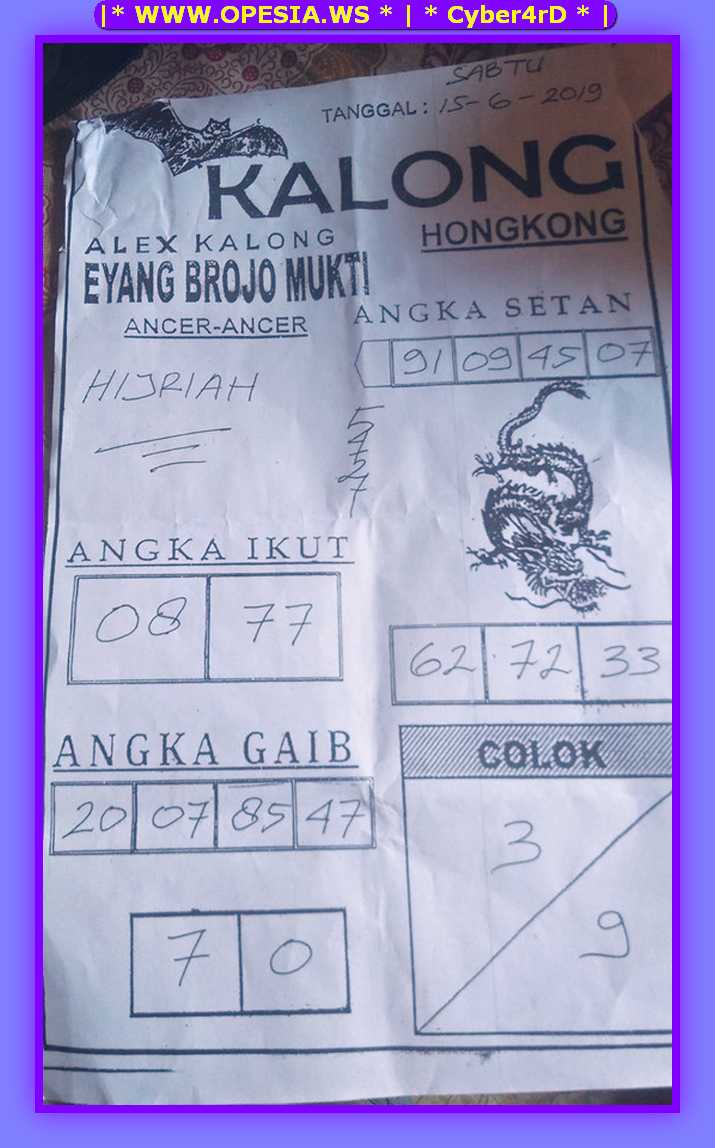 |* WWW.OPESIA.WS * | * Cyber4rD * |
SABTU
TANGGAL : 15-6-2019
KALONG
HONGKONG
ALEX KALONG
EYANG BROJO MUKTI
ANCER-ANCER
ANGKA SETAN
91 09 45 07
HIJRIAH
5
4
7
5
2
7
ANGKA IKUT
08 77
62 72 33
ANGKA GAIB
COLOK
20 07 85 47
3
9
7 0